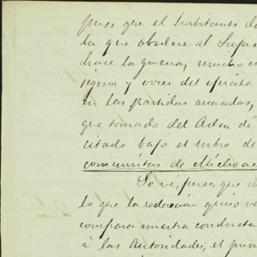 pues que el habitante de
la que obedece al Supre
hace la guerra, muchas
signos y voces del ejército
en las partidas armadas,
que tomado del Acta de
citado bajo el rubro de
comunistas de Michoac
Lo vé, pues, que
lo que la redacción quiso
compara nuestra conducta
á las Autoridades, el prim